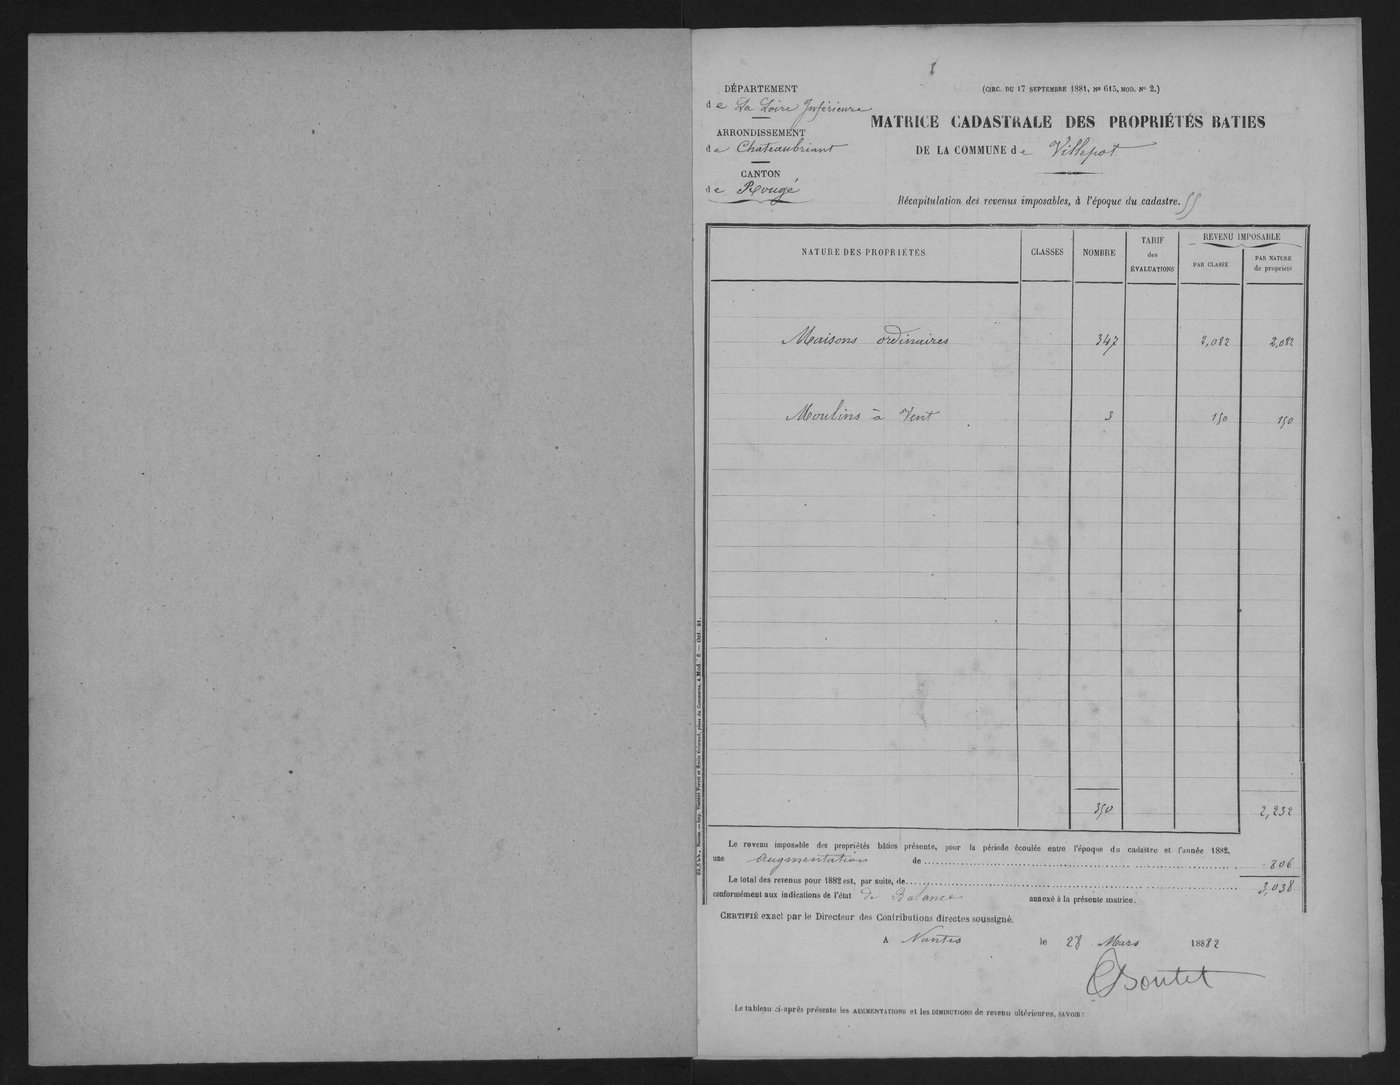 DÉPARTEMENT
de La Loire Inférieure
ARRONDISSEMENT
de Chateaubriant
CANTON
de Rougé
(CIRC. DU 17 SEPTEMBRE 1881, Nº 615, MOD. Nº 2.)
MATRICE CADASTRALE DES PROPRIÉTÉS BATIES
DE LA COMMUNE de Villepot
Récapitulation des revenus imposables, à l'époque du cadastre.
NATURE DES PROPRIÉTÉS CLASSES NOMBRE TARIF des ÉVALUATIONS REVENU IMPOSABLE
PAR CLASSE PAR NATURE de propriété
Maisons ordinaires 347 2,082 2,082
Moulins à Vent 3 150 150
350 2,232
Le revenu imposable des propriétés bâties présente, pour la période écoulée entre l'époque du cadastre et l'année 1882,
une augmentation de 806
Le total des revenus pour 1882 est, par suite, de 3,038
conformément aux indications de l'état de Balance annexé à la présente matrice.
CERTIFIÉ exact par le Directeur des Contributions directes soussigné.
A Nantes le 28 Mars 1882
Boutet
Le tableau ci-après présente les AUGMENTATIONS et les DIMINUTIONS de revenu ultérieures, SAVOIR: